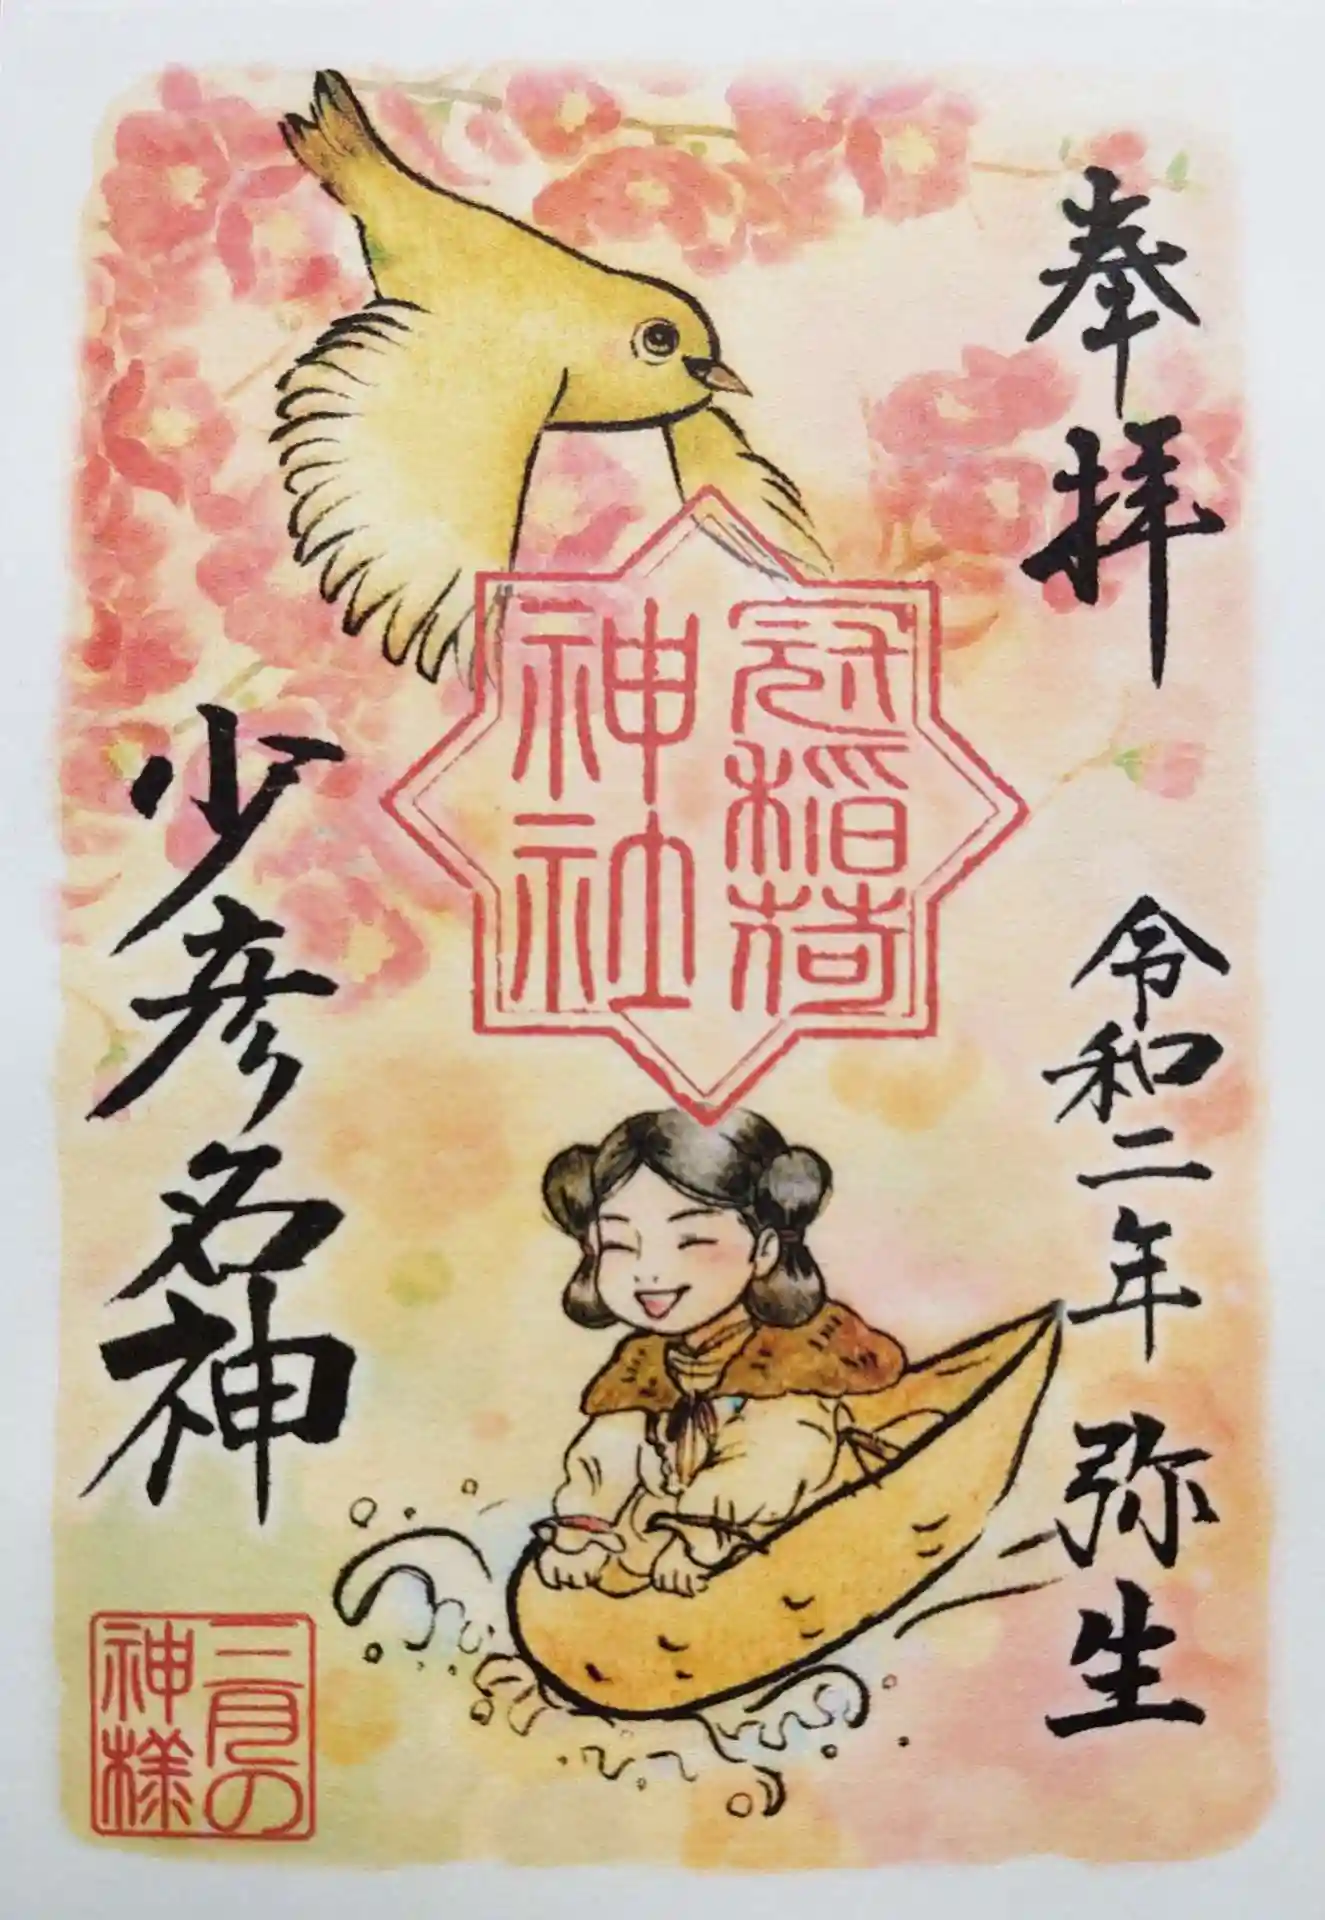 奉拝
令和二年 弥生
冠稲荷
神社
少彦名神
三月の
神様